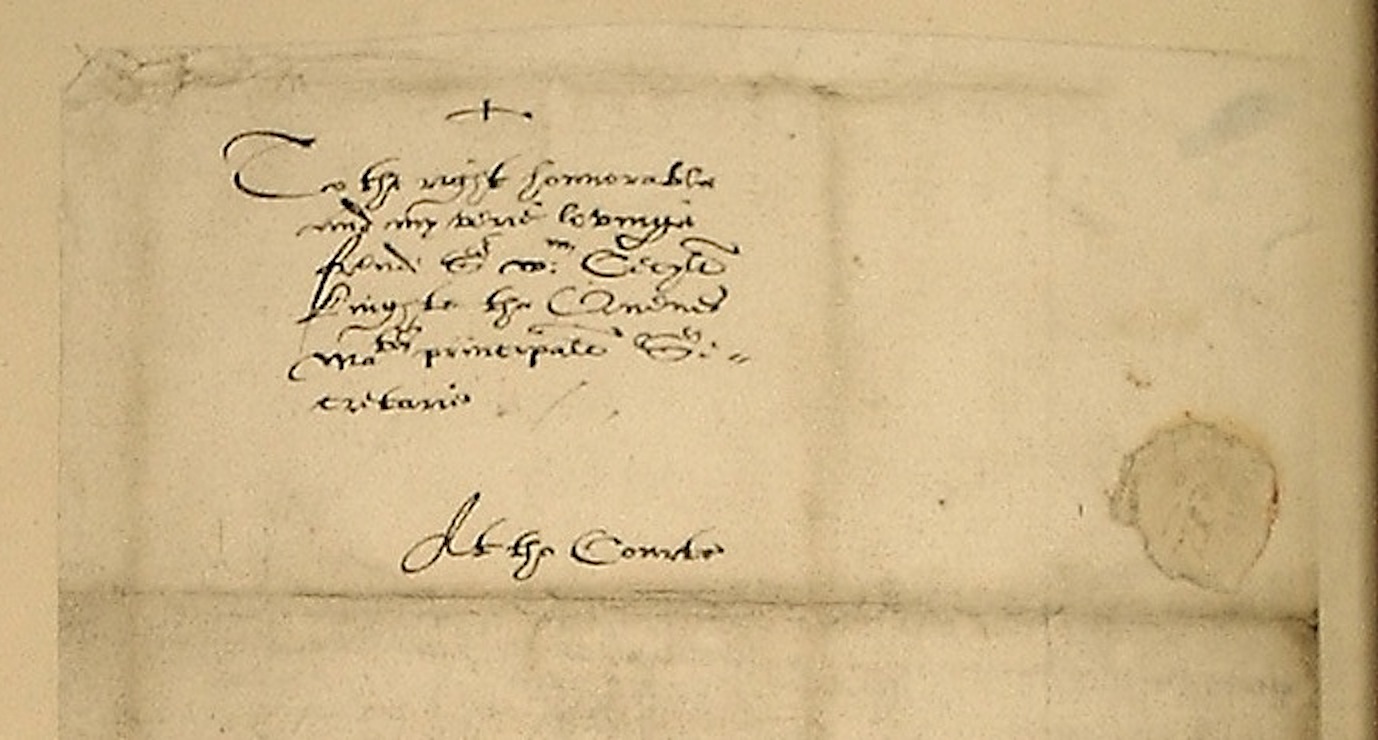 +
To the right honnorable
and my verie lovinge
frend Sr Wm: Cecyll
knighte the Quenes
Maties principale Se=
cretarie
At the Courte